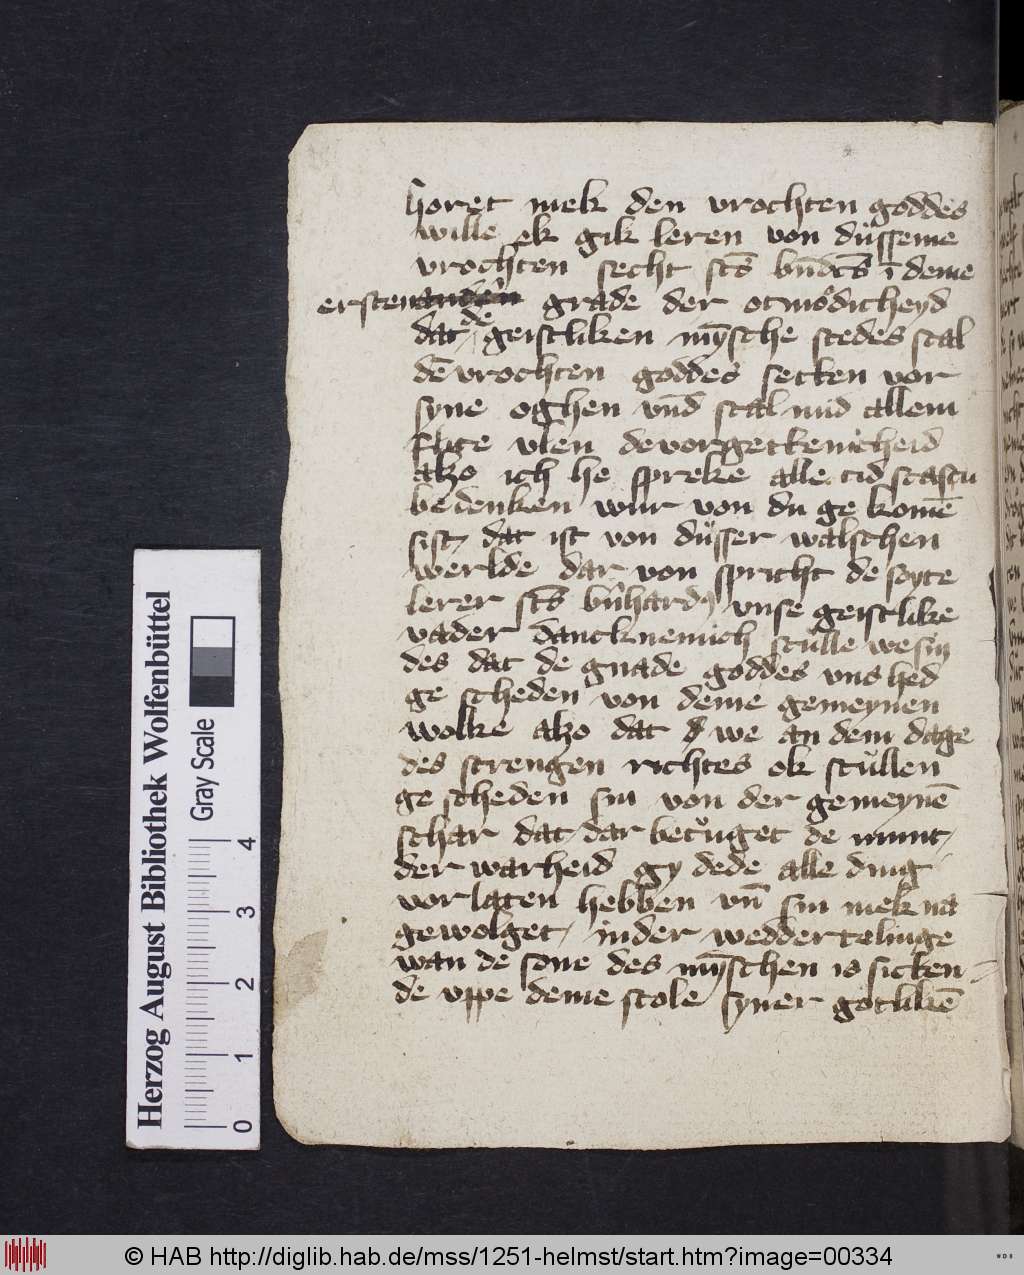 horet mek den vrochten goddes
wille ek gik leren von düsseme
vrochten secht sc̄s bn̄dcs̄ ī deme
ersten grade der otmödicheyd
dat de geistliken mȳsche stedes scal
dē vrochten goddes setten vor
syne oghen vnd scal mid allem
flite vlen de vorgettenicheid
alzo ich he spreke alle tid scastu
bedenken wur von du ge komē
sist dat ist von düsser walschen
werlde dar von spricht de soyte
lerer sc̄s bn̄hardꝯ vnse geistlike
vader dancknemich scülle we sin
des dat de gnade goddes vns hed
ge scheden von deme gemeynen
wolke alzo dat we an dem dage
des strengen richtes ok scüllen
ge scheden sin von der gemeynē
schar dat dar betüget de munt
der warheid gy dede alle ding
vorlaten hebben vn̄ sin mek na
gewolget in der weddertelinge
wan de sone des mȳschen is sitten
de vppe deme stole syner götlikē
Herzog August Bibliothek Wolfenbüttel
Gray Scale
0 1 2 3 4
© HAB http://diglib.hab.de/mss/1251-helmst/start.htm?image=00334